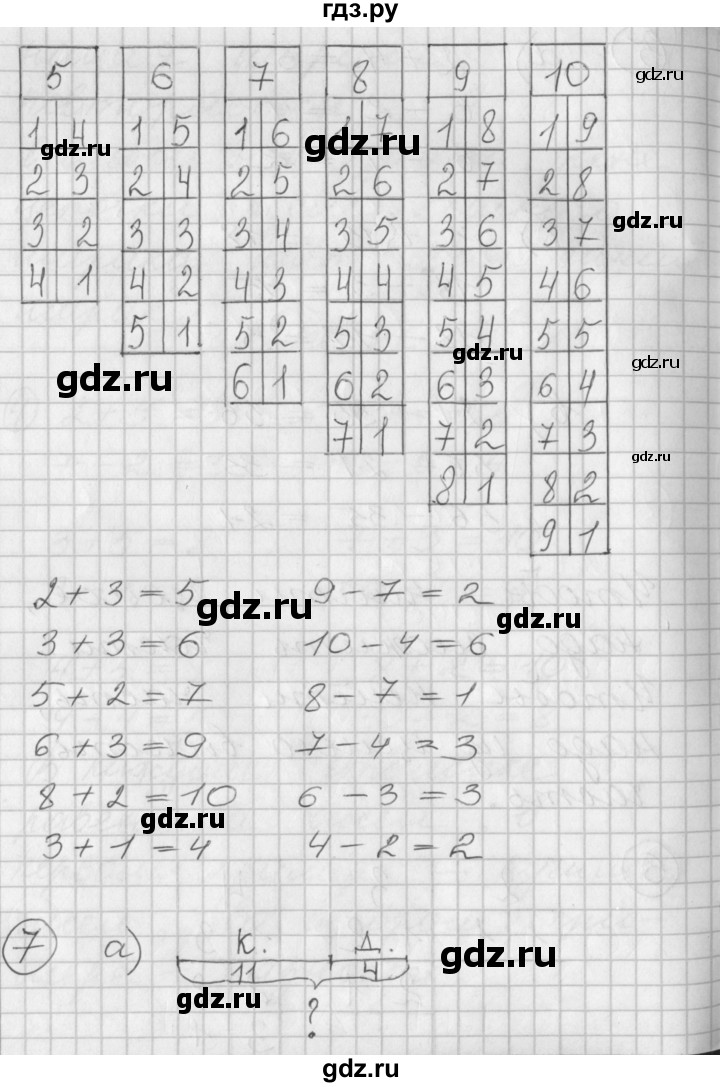 гдз.ру
5 6 7 8 9 10
gdz.ru
1 4 1 5 1 6 1 7 1 8 1 9
gdz.ru gdz.ru
2 3 2 4 2 5 2 6 2 7 2 8
gdz.ru
3 2 3 3 3 4 3 5 3 6 3 7
4 1 4 2 4 3 4 4 4 5 4 6
5 1 5 2 5 3 5 4 5 5
gdz.ru gdz.ru
gdz.ru
6 1 6 2 6 3 6 4
7 1 7 2 7 3
gdz.ru
8 1 8 2
9 1
2 + 3 = 5 9 - 7 = 2
gdz.ru gdz.ru
3 + 3 = 6 10 - 4 = 6
5 + 2 = 7 8 - 7 = 1
6 + 3 = 9 7 - 4 = 3
8 + 2 = 10 6 - 3 = 3
gdz.ru
3 + 1 = 4 4 - 2 = 2
7 а) К. Д.
gdz.ru
11 4
gdz.ru
?
gdz.ru